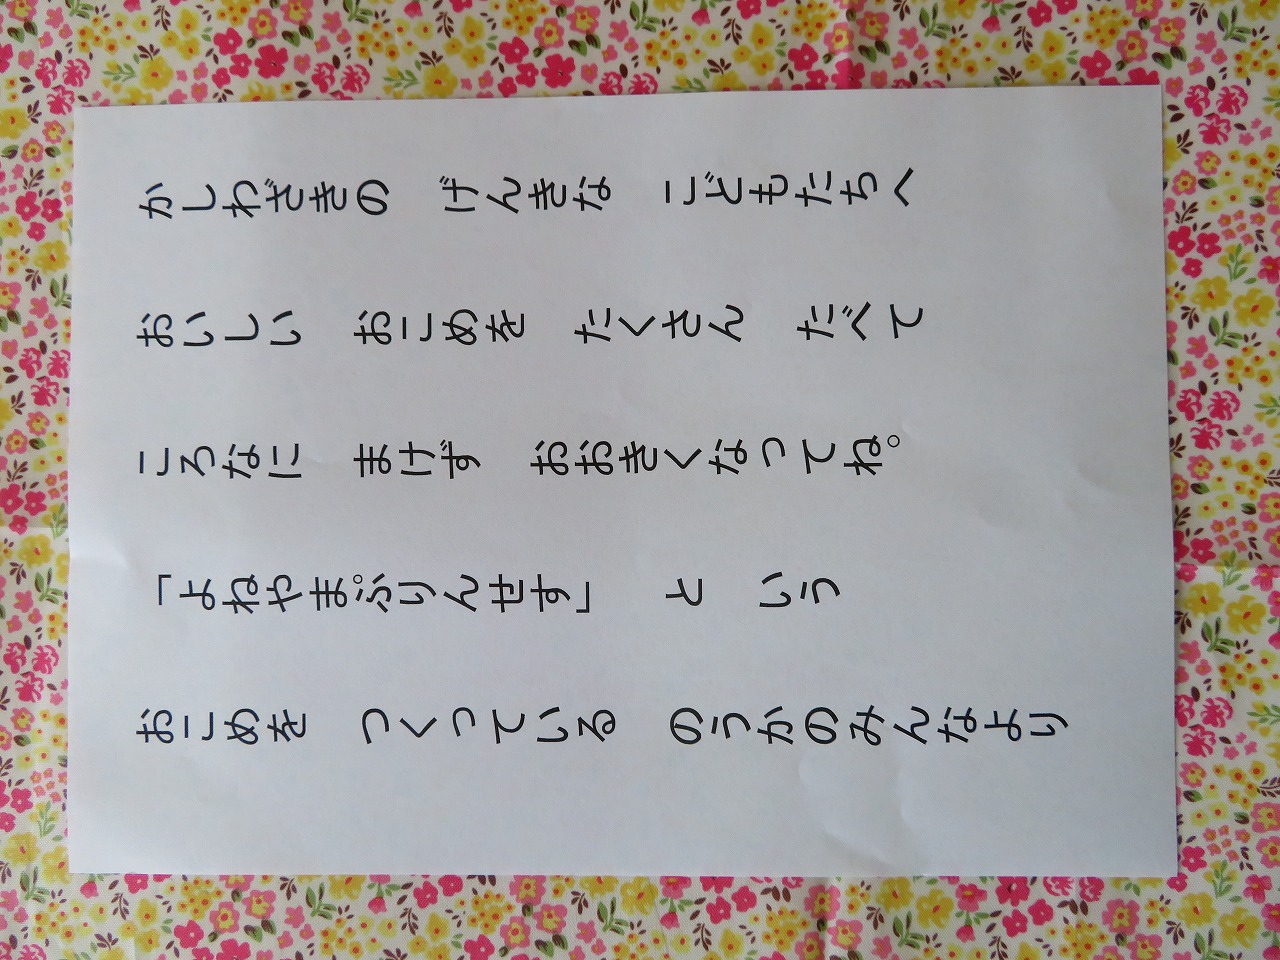 かしわざきの　げんきな　こどもたちへ
おいしい　おこめを　たくさん　たべて
ころなに　まけず　おおきくなってね。
「よねやまぷりんせす」　と　いう
おこめを　つくっている　のうかのみんなより